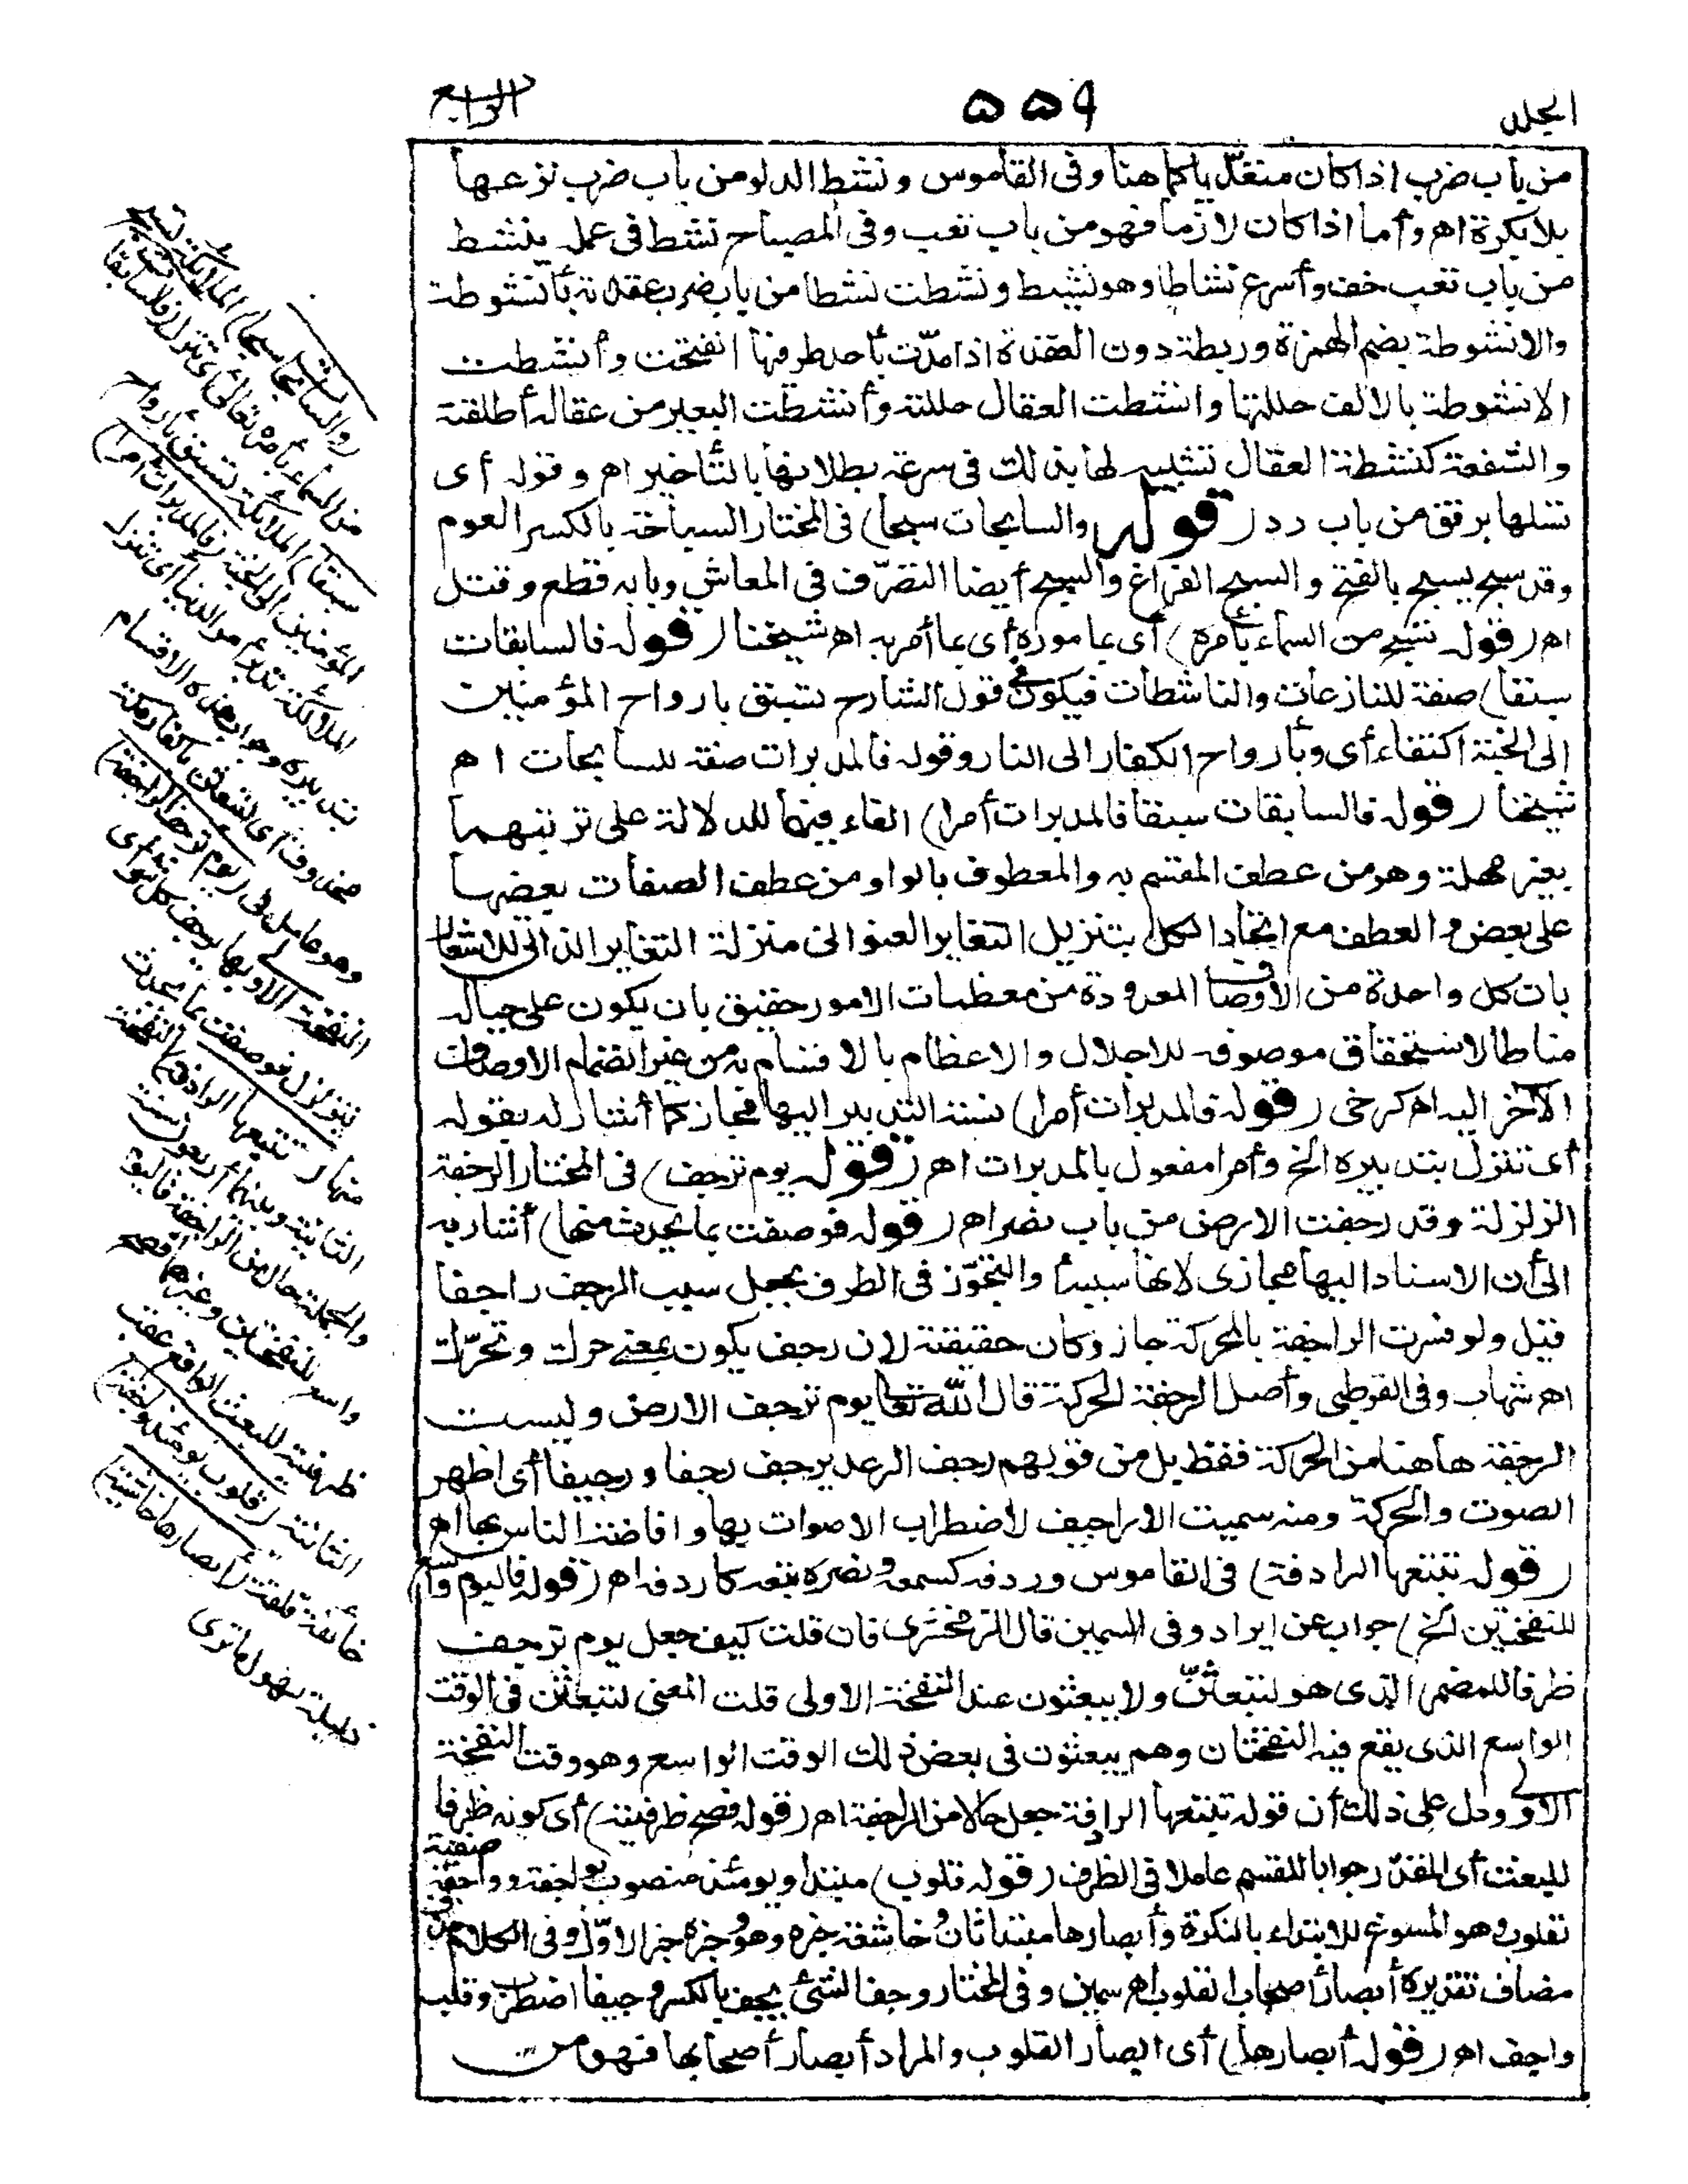 الجلد
٥٥٩
الرابع
من باب ضرب اذا كان متعدّيا كما هنا وفى القاموس ونشط الدلو من باب ضرب نزعها
بلا بكرة اه وأما اذا كان لازما فهو من باب تعب وفى المصباح نشط فى عمله ينشط
من باب تعب خف وأسرع نشاطا وهو نشيط ونشطت نشطا من باب ضرب عقدته بأنشوطة
والانشوطة بضم الهمزة وربطة دون العقدة اذا مدّت بأحد طرفيها انفتحت وأنشطت
الانشوطة بالالف حللتها وانشطت العقال حللته وأنشطت البعير من عقاله أطلقته
والشفعة كنشطة العقال تشبيه لها بذلك فى سرعة بطلانها بالتأخير اه وقوله أى
تسلها برفق من باب رد (قوله والسابحات سبحا) فى المختار السباحة بالكسر العوم
وقد سبح يسبح بالفتح والسبح الفراغ والسبح أيضا التصرّف فى المعاش وبابه قطع وقتل
اه (قوله تسبح من السماء بأمره) أى بمأموره أى بما أمر به اه شيخنا (قوله فالسابقات
سبقا) صفة للنازعات والناشطات فيكون فى قول الشارح تسبق بارواح المؤمنين
الى الجنة اكتفاء أى وبأرواح الكفار الى النار وقوله فالمدبرات صفة للسابحات اه
شيخنا (قوله فالسابقات سبقا فالمدبرات أمرا) الفاء فيهما للدلالة على ترتبهما
بغير مهلة وهو من عطف المقسم به والمعطوف بالواو من عطف الصفات بعضها
على بعض والعطف مع اتحاد الكل بتنزيل التغاير العنوانى منزلة التغاير الذاتى للاشعار
بان كل واحدة من الأوصاف المعدودة من معظمات الامور حقيق بان يكون على حياله
مناطا لاستحقاق موصوفه للاجلال والاعظام بالاقسام به من غير انضمام الاوصاف
الأخر اليه اه كرخى (قوله فالمدبرات أمرا) نسبة التدبير اليها مجاز كما أشار له بقوله
أى تنزل بتدبيره الخ وأمرا مفعول بالمدبرات اه (قوله يوم ترجف) فى المختار الرجفة
الزلزلة وقد رجفت الارض من باب نصر اه (قوله فوصفت بما يحدث منها) أشار به
الى أن الاسناد اليها مجازى لانها سببه أو التجوّز فى الطرف بجعل سبب الرجف راجفا
قيل ولو فسرت الراجفة بالمحركة جاز وكان حقيقة لان رجف يكون بمعنى حرك وتحرّك
اه شهاب وفى القرطبى وأصل الرجفة الحركة قال الله تعالى يوم ترجف الارض وليست
الرجفة هاهنا من الحركة فقط بل من قولهم رجف الرعد يرجف رجفا ورجيفا أى اظهر
الصوت والحركة ومنه سميت الاراجيف لاضطراب الاصوات بها وافاضة الناس بها اه
(قوله تتبعها الرادفة) فى القاموس وردفه كسمعه ونصره تبعه كاردفه اه (قوله فاليوم واسع
للنفختين الخ) جواب عن ايراد وفى السمين قال الزمخشرى فان قلت كيف جعل يوم ترجف
ظرفا للمضمر الذى هو لتبعثنّ ولا يبعثون عند النفخة الاولى قلت المعنى لتبعثن فى الوقت
الواسع الذى يقع فيه النفختان وهم يبعثون فى بعض ذلك الوقت الواسع وهو وقت النفخة
الاولى ودل على ذلك أن قوله تتبعها الرادفة جعل حالا من الراجفة اه (قوله فصح ظرفيته) أى كونه ظرفا
للبعث أى المقدّر جوابا للقسم عاملا فى الظرف (قوله قلوب) مبتدأ ويومئذ منصوب بواجفة وواجفة صفة
لقلوب وهو المسوغ للابتداء بالنكرة وأبصارها مبتدأ ثان وخاشعة خبره وهو وخبره خبر الاوّل وفى الكلام حذف
مضاف تقديره أبصار أصحاب القلوب اه سمين وفى المختار وجف الشئ يجف بالكسر وجيفا اضطرب وقلب
واجف اه (قوله أبصارها) أى ابصار القلوب والمراد أبصار أصحابها فهو من
(والسابحات سبحا) الملائكة تسبح
من السماء بأمره تعالى أى تنزل (فالسابقات
سبقا) الملائكة تسبق بأرواح
المؤمنين الى الجنة (فالمدبرات أمرا)
الملائكة تدبر أمر الدنيا أى تنزل
بتدبيره وجواب هذه الاقسام
محذوف أى لتبعثن يا كفار مكة
وهو عامل فى (يوم ترجف الراجفة)
النفخة الاولى بها يرجف كل شئ أى
يتزلزل فوصفت بما يحدث
منها (تتبعها الرادفة) النفخة
الثانية وبينهما أربعون سنة
والجملة حال من الراجفة فاليوم
واسع للنفختين وغيرهما فصح
ظرفيته للبعث الواقع عقب
الثانية (قلوب يومئذ واجفة)
خائفة قلقة (أبصارها خاشعة)
ذليلة لهول ما ترى